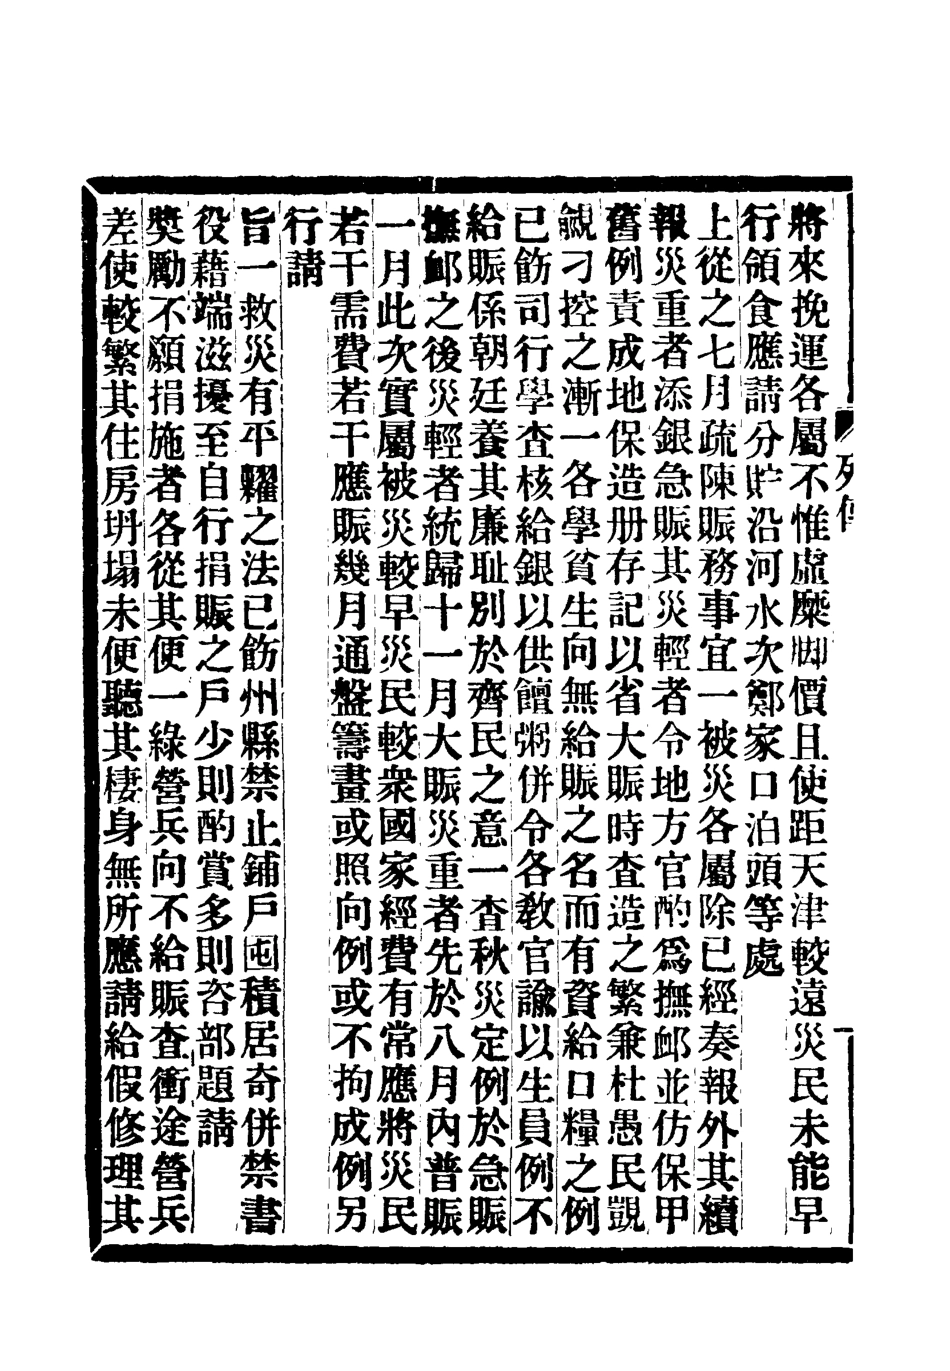 將來挽運各屬不惟虛糜脚價且使距天津較遠災民未能早
行領食應請分貯沿河水次鄭家口泊頭等處
上從之七月疏陳賑務事宜一被災各屬除已經奏報外其續
報災重者添銀急賑其災輕者令地方官酌爲撫䘏並仿保甲
舊例責成地保造册存記以省大賑時查造之繁兼杜愚民覬
覦刁控之漸一各學貧生向無給賑之名而有資給口糧之例
已飭司行學查核給銀以供饘粥併令各教官諭以生員例不
給賑係朝廷養其廉耻別於齊民之意一查秋災定例於急賑
撫䘏之後災輕者統歸十一月大賑災重者先於八月內普賑
一月此次實屬被災較早災民較衆國家經費有常應將災民
若干需費若干應賑幾月通盤籌畫或照向例或不拘成例另
行請
旨一救災有平糶之法已飭州縣禁止鋪戶囤積居奇併禁書
役藉端滋擾至自行捐賑之戶少則酌賞多則咨部題請
獎勵不願捐施者各從其便一綠營兵向不給賑查衝途營兵
差使較繁其住房坍塌未便聽其棲身無所應請給假修理其
列傳